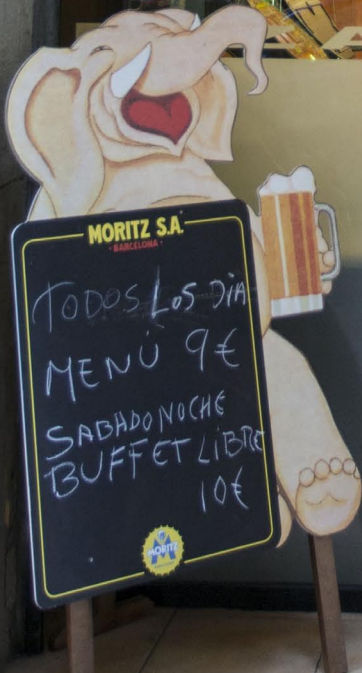 MORITZ S.A.
· BARCELONA ·
TODOS LOS DIA
MENÚ 9€
SABADO NOCHE
BUFFET LIBRE
10€
MORITZ